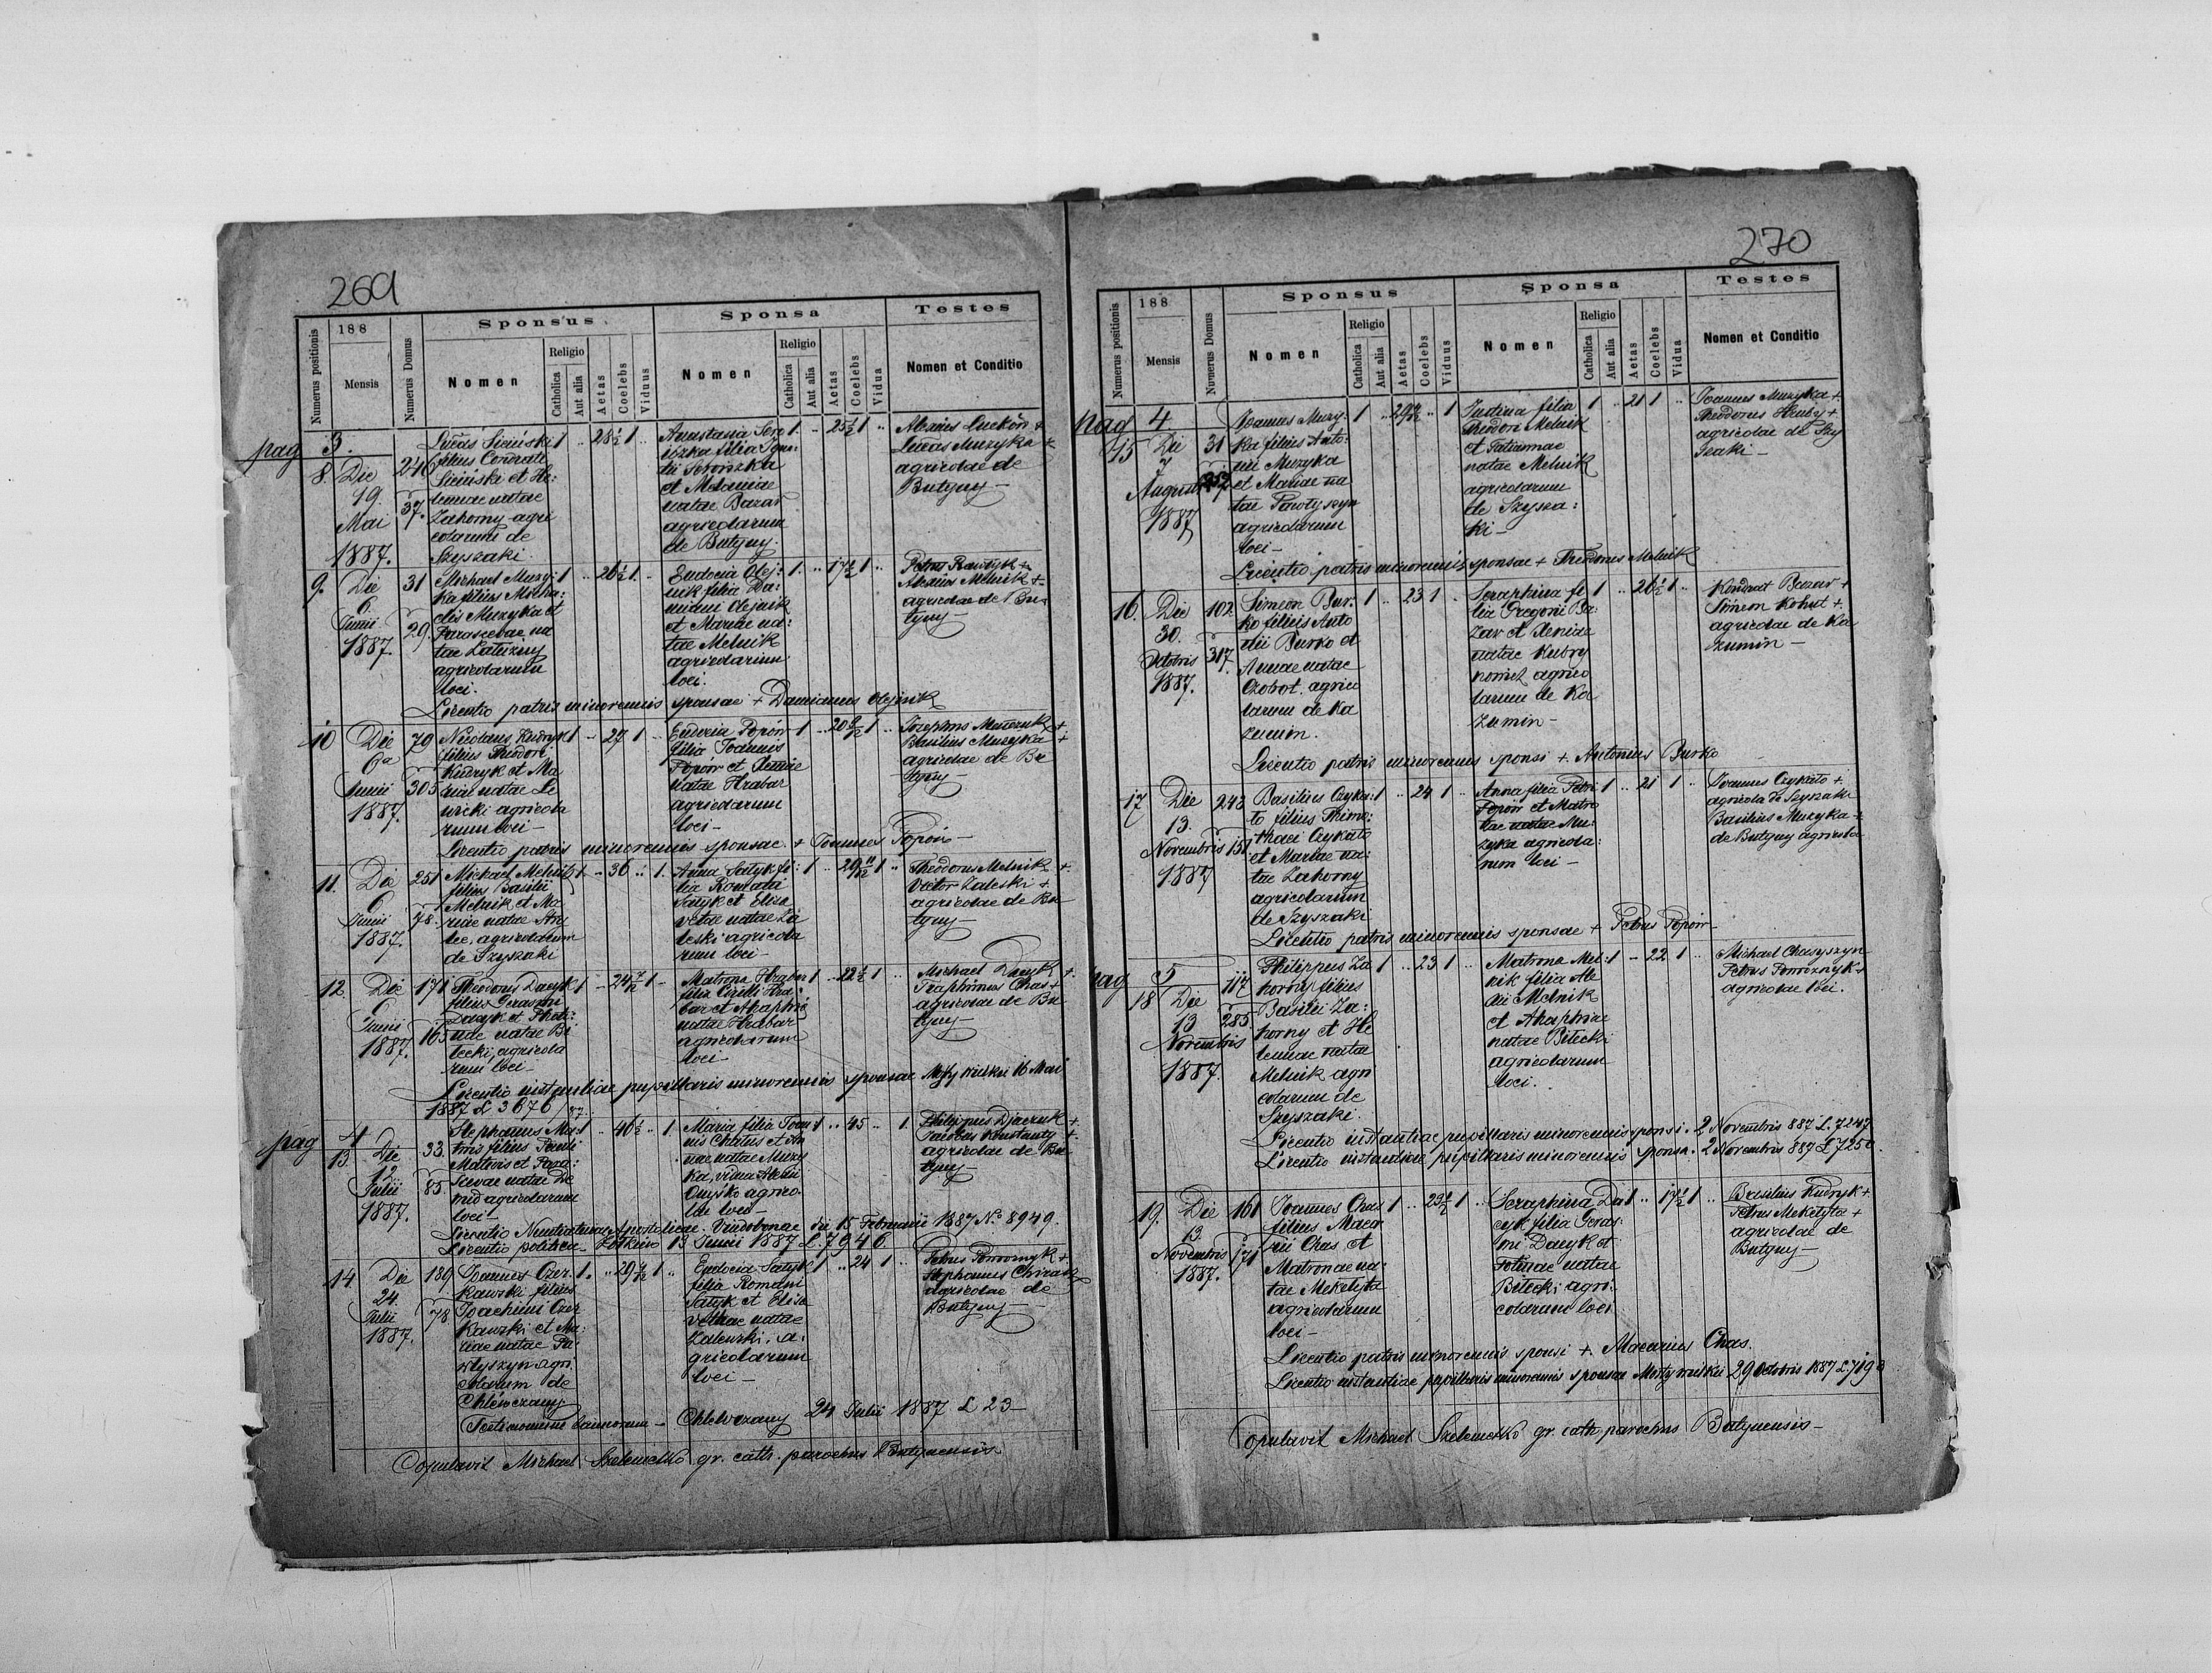 269
Numerus positionis
188
Mensis
Numerus Domus
Sponsus
Nomen
Religio
Catholica
Aut alia
Aetas
Coelebs
Viduus
Sponsa
Nomen
Religio
Catholica
Aut alia
Aetas
Coelebs
Vidua
Testes
Nomen et Conditio
pag 3.
8. Die 19 Mai 1887.
246
37.
Lucas Siciński
filius Conrati
Siciński et He:
lenae natae
Zahorny agri
colarum de
Szyszaki.
1 .. 28½ 1 ..
Anastasia Sero
iszka filia Igna:
tii Seroiszka
et Melaniae
natae Bazar
agricolarum
de Butyny.
1 .. 25½ 1 ..
Alexius Luckón +
Lucas Muzyka +
agricolae de
Butyny —
9. Die 6. Junii 1887.
31
29.
Michael Muzy:
ka filius Micha:
elis Muzyka et
Parascevae na
tae
agricolarum
loci.
1 .. 26½ 1 ..
Eudocia Olej:
nik filia Da:
miani Olejnik
et Mariae na:
tae Melnik
agricolarum
loci.
1 .. 17½ 1 ..
Petrus
Alexius Melnik +
agricolae de Bu
tyny
Licentio patris minorennis sponsae + Damianus Olejnik
10 Die 6a Junii 1887.
79
305
Nicolaus Kudryk
filius Theodori
Kudryk et Ma
riae natae Le
wicki agricola
rum loci —
1 .. 27 1 ..
Eudoxia Popów
filia Joannis
Popów et Xeniae
natae Hrabar
agricolarum
loci —
1 .. 20 1 ..
Josephus
Basilius Muzyka +
agricolae de Bu
tyny —
Licentio patris minorennis sponsae. + Joannes Popów —
11. Die 6 Junii 1887.
251
78.
Michael Melnik
filius Basilii
Melnik et Ma
riae natae
agricolarum
de Szyszaki
1 .. 36 .. 1.
Anna Satyk fi:
lia Romani
Satyk et Elisa
vetae natae Za
leski agricola
rum loci —
1 .. 29 11/12 1 ..
Theodorus Melnik +
Victor Zaleski +
agricolae de Bu
tyny —
12. Die 6 Junii 1887.
171
165
Theodorus Dacyk
filius Gerasimi
Dacyk et Photi:
nae natae Bi
lecki, agricola
rum loci —
1 .. 24 7/12 1 ..
Matrona Hrabar
filia Cirilli Hra:
bar et Ahaphiae
natae Hrabar
agricolarum
loci —
1 .. 22½ 1 ..
Michael Dacyk +
Traphimus Chas +
agricolae de Bu
tyny —
Licentio instantiae pupillaris minorennis sponsae Mosty wielkie 16 Mai
1887 L 3676/87.
pag 4
13. Die 12 Julii 1887.
33.
85.
Stephanus Ma:
twis filius Pauli
Matwis et Para:
scevae natae De
mid agricolarum
loci —
1 .. 46½ .. 1
Maria filia Joan
nis Chatus et An
nae natae Muzy
ka, vidua Alexii
Onyśko agrico:
lae loci —
1 .. 45 .. 1.
Philippus Djaczuk +
Jacobus Konstanty +
agricolae de Bu
tyny —
Licentio Nuntiaturae Apostolicae. Vindobonae die 15 Februarii 1887 No. 8949.
Licentio politica — Żółkiew 13 Junii 1887 L. 7946
14 Die 24 Julii 1887.
189
78
Joannes Czer:
kawski filius
Joachimi Czer
kawski et Ma:
riae natae Pa:
wlyszyn agri
colarum de
Chlewczany
1 .. 29 1 ..
Eudocia Satyk
filia Romani
Satyk et Elisa
vethae natae
Zalewski. a:
gricolarum
loci —
1 .. 24 1 ..
Petrus Pomoznyk +
Stephanus Chirasz
agricolae de
Butyny —
Testimonium bannorum — Chlewczany 24 Julii 1887 L 23 —
Copulavit Michael Szelemetko gr. cath. parochus Butynensis
270
Numerus positionis
188
Mensis
Numerus Domus
Sponsus
Nomen
Religio
Catholica
Aut alia
Aetas
Coelebs
Viduus
Sponsa
Nomen
Religio
Catholica
Aut alia
Aetas
Coelebs
Vidua
Testes
Nomen et Conditio
pag 4
15 Die 7 Augusti 1887
31
257
Joannes Muzy:
ka filius Anto:
nii Muzyka
et Mariae na
tae Pawłyszyn
agricolarum
loci —
1 .. 29 .. 1
Justina filia
Theodori Melnik
et Tatiannae
natae Melnik
agricolarum
de Szysza:
ki —
1 .. 21 1 ..
Joannes Muzyka +
Theodorus Hruby +
agricolae de Szy
szaki —
Licentio patris minorennis sponsae + Theodorus Melnik
16. Die 30. Octobris 1887.
102
317.
Simeon Bur:
ko filius Anto
nii Burko et
Annae natae
Czobot. agrico
larum de Ka
zumin.
1 .. 23 1 ..
Seraphina fi
lia Gregorii Ba:
zar et Xeniae
natae Kubry
nowicz agrico
larum de Ka
zumin —
1 .. 26½ 1 ..
Kondrat Bazar +
Simeon Kohut +
agricolae de Ka
zumin —
Licentio patris minorennis sponsi +. Antonius Burko
17 Die 13. Novembris 1887
243
151
Basilius Czyka:
to filius Thimo:
thaei Czykato
et Mariae na:
tae Zahorny
agricolarum
de Szyszaki
1 .. 24 1 ..
Anna filia Petri
Popów et Matro
nae natae Mu:
zyka agricola:
rum loci —
1 .. 21 1 ..
Joannes Czykato +
agricola de Szyszaki
Basilius Muzyka +
de Butyny agricola
Licentio patris minorennis sponsae + Petrus Popów —
pag 5
18 Die 13 Novembris 1887.
117
285
Philippus Za
horny filius
Basilii Za:
horny et He
lenae natae
Melnik agri
colarum de
Szyszaki.
1 .. 23 1 ..
Matrona Mel:
nik filia Ale
xii Melnik
et Ahaphiae
natae Bilecki
agricolarum
loci.
1 .. 22 1 ..
Michael Chaszyszyn
Petrus Pomoznyk +
agricolae loci.
Licentio instantiae pupillaris minorennis sponsi. 2 Novembris 887 L. 7247
Licentio instantiae pupillaris minorennis sponsae. 2 Novembris 887 L 7250.
19. Die 13. Novembris 1887.
161
171
Joannes Chas
filius Maca
rii Chas et
Matronae na:
tae Meketyta
agricolarum
loci —
1 .. 23½ 1 ..
Seraphina Da
cyk filia Geras:
imi Dacyk et
Fotinae natae
Bilecki agri:
colarum loci
1 .. 17½ 1 ..
Basilius Kudryk +
Petrus Meketyta +
agricolae de
Butyny —
Licentio patris minorennis sponsi +. Macarius Chas.
Licentio instantiae pupillaris minorennis sponsae Mosty wielkie 29 Octobris 1887 L. 7190
Copulavit Michael Szelemetko gr. cath. parochus Butynensis —